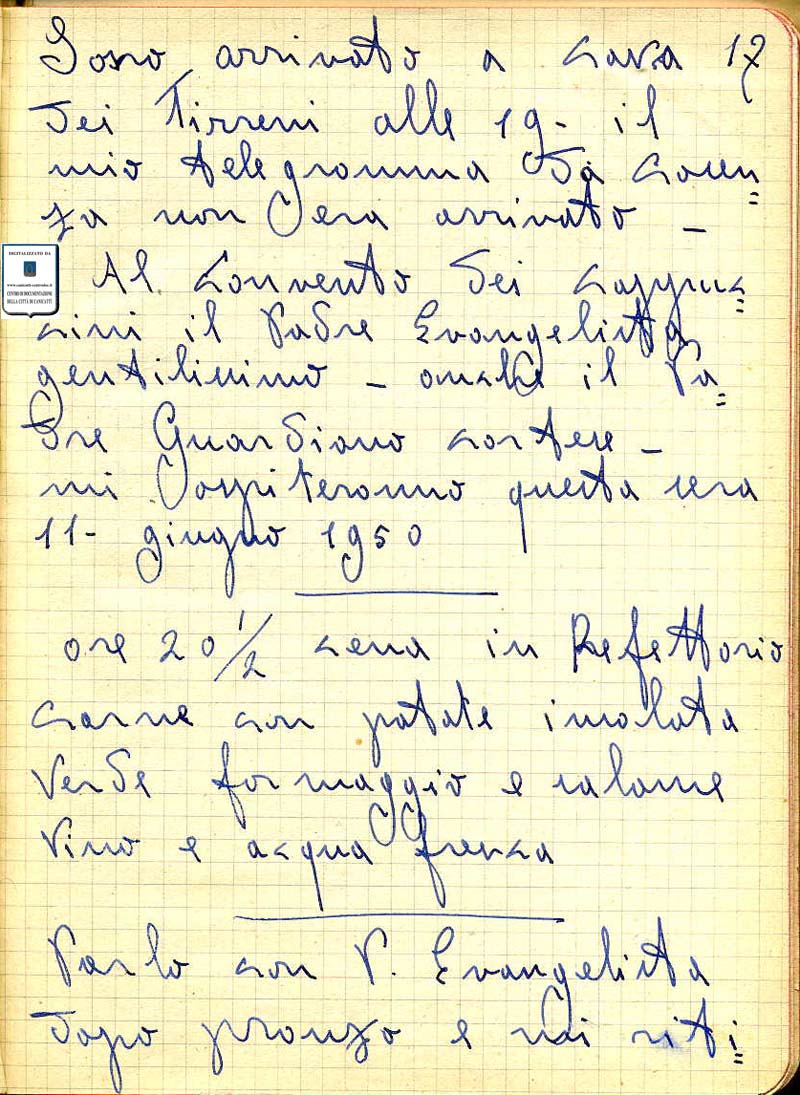 Sono arrivato a Cava 17
dei Tirreni alle 19- il
mio telegramma da Cosen=
za non era arrivato -
Al Convento dei Cappuc=
cini il Padre Evangelista
gentilissimo - anche il Pa=
dre Guardiano cortese -
mi ospiteranno questa sera
11- giugno 1950
ore 20 1/2 cena in Refettorio
Carne con patate insalata
Verde formaggio e salame
Vino e acqua fresca
Parlo con P. Evangelista
dopo pranzo e mi riti=
DIGITALIZZATO DA
CENTRO DI DOCUMENTAZIONE
DELLA CITTÀ DI CANICATTÌ